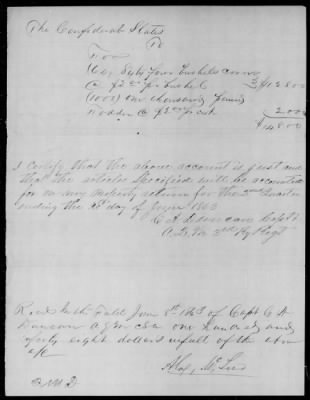 The Confederate States
To
For
(64) Sixty four bushels corn
@ $2 00 pr bushel $128 00
(1000) one thousand pounds
Fodder @ $2 00 pr 20 00
$148 00
I certify that the above account is just and
that the articles specified will be accounted
for on my property return for the 2nd Quarter
ending the day of June 1863
Duncan Capt
A.Q.M. Regt
Recd in the Field June 8th 1863 of Capt
Duncan AQM CSA one hundred and
forty eight dollars in full of the above
a/c
Alex